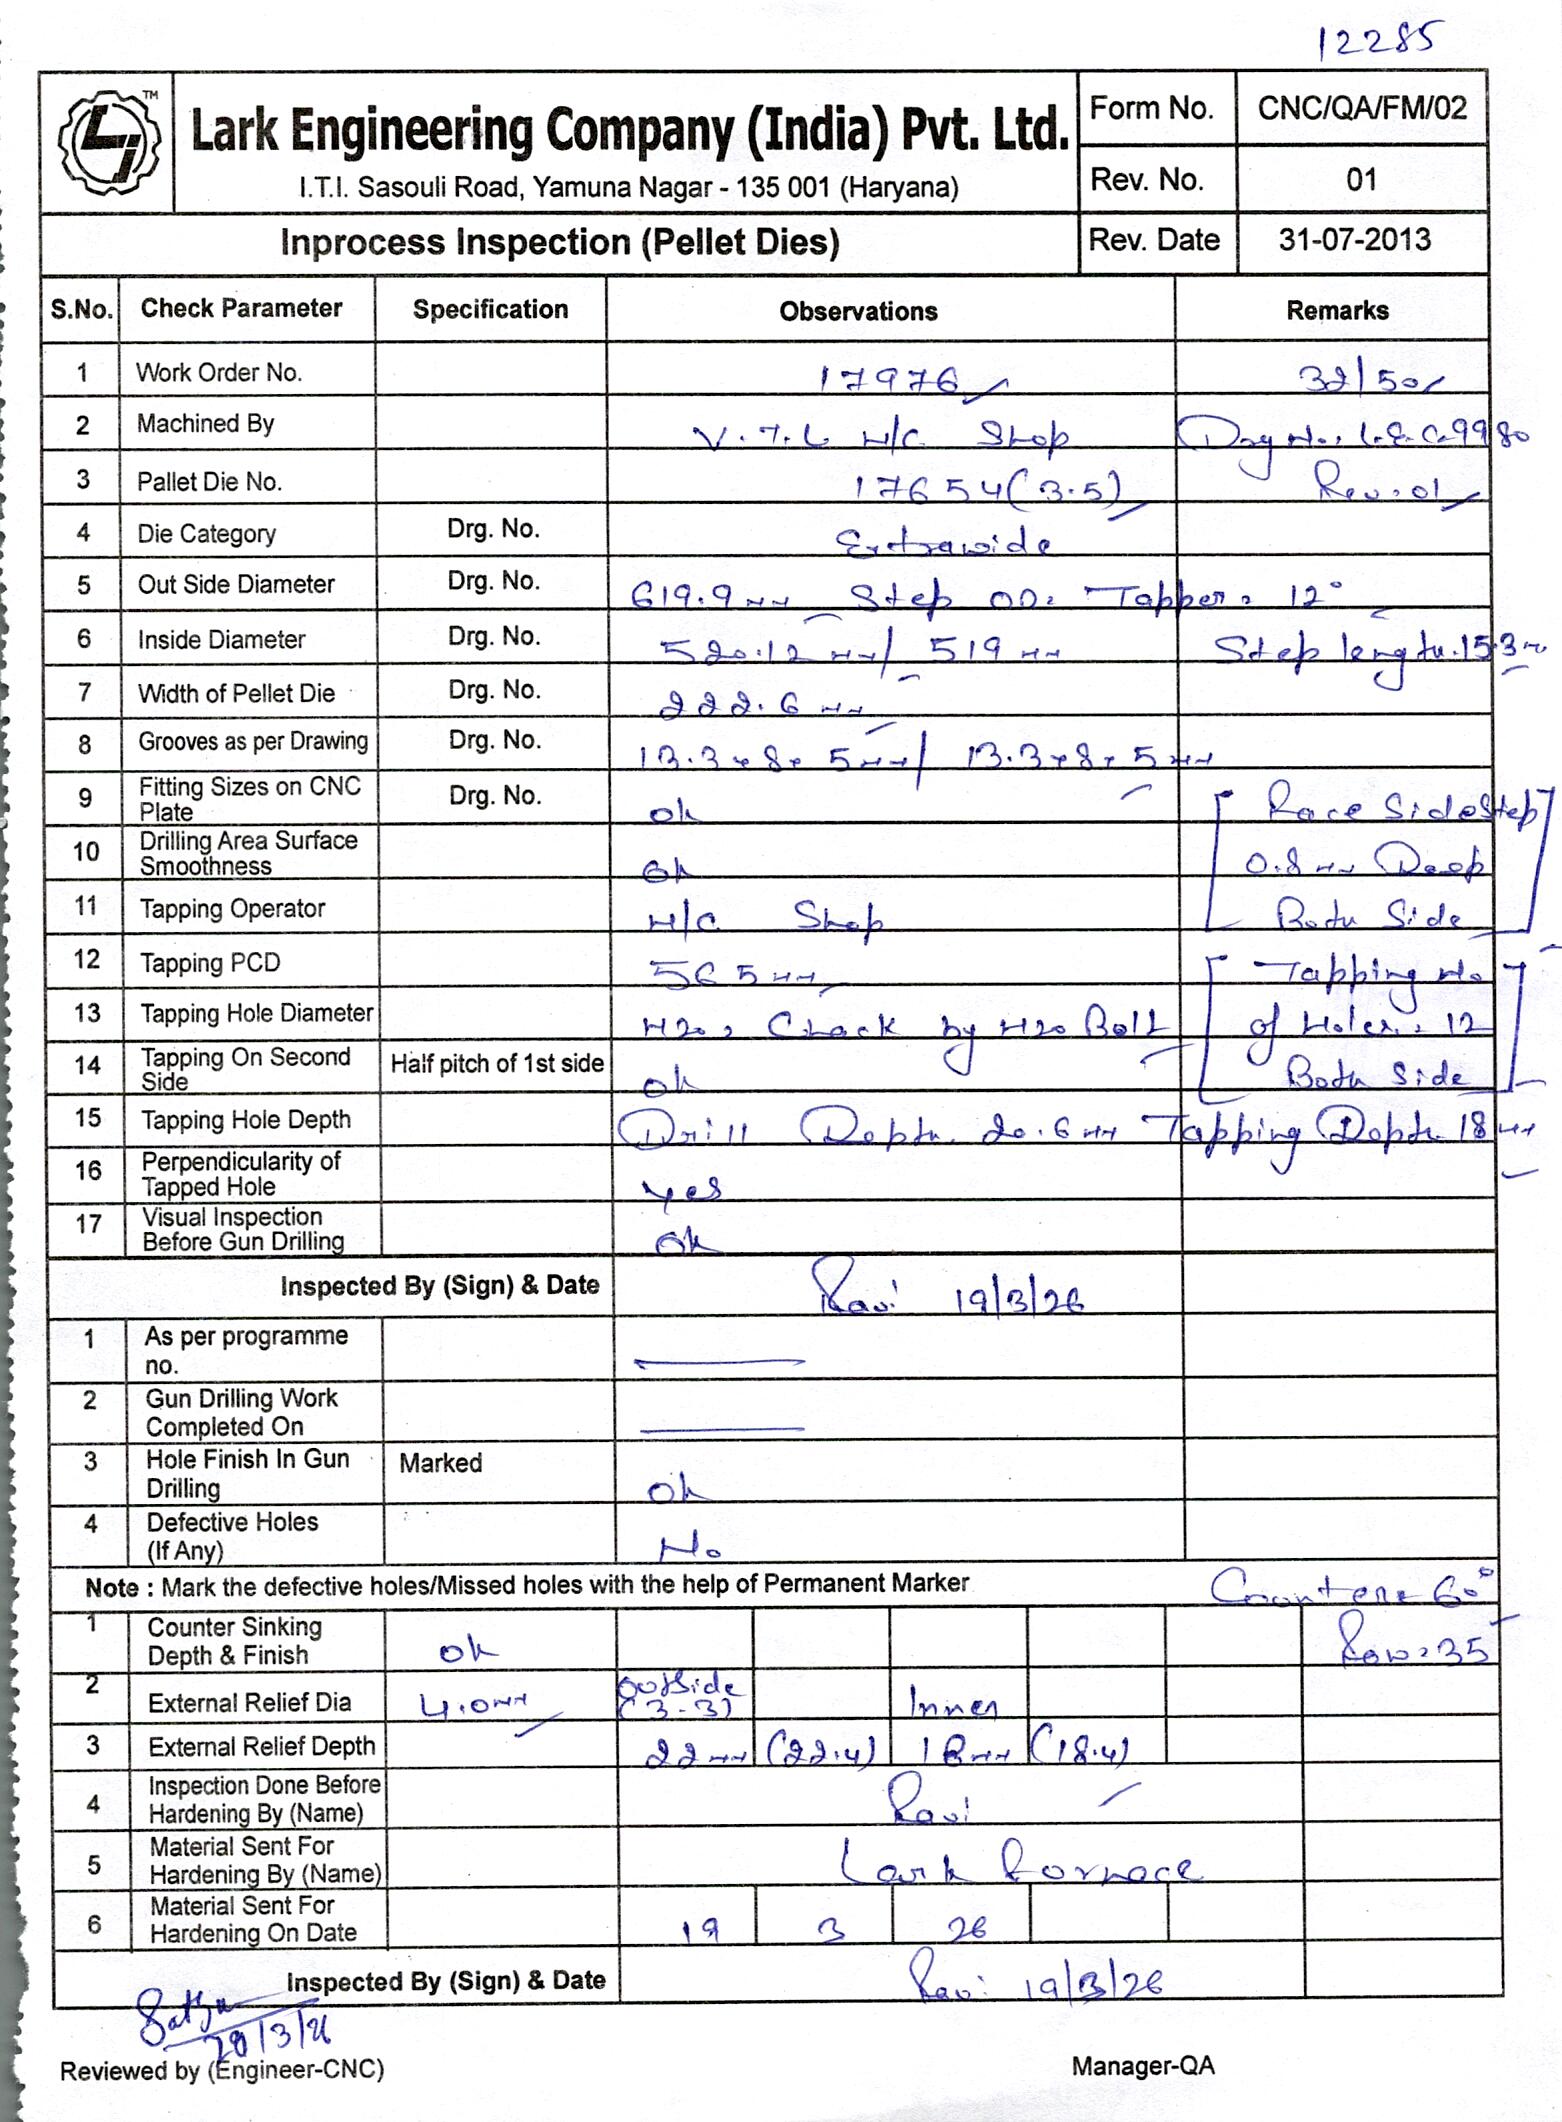 12285
TM
Lark Engineering Company (India) Pvt. Ltd.
I.T.I. Sasouli Road, Yamuna Nagar - 135 001 (Haryana)
Form No. CNC/QA/FM/02
Rev. No. 01
Inprocess Inspection (Pellet Dies) Rev. Date 31-07-2013
S.No. Check Parameter Specification Observations Remarks
1 Work Order No. 17976 32/50
2 Machined By V.T.L M/C Shop Drg No. L.E.C.9980
3 Pallet Die No. 17654(3.5) Rev.01
4 Die Category Drg. No. Extrawide
5 Out Side Diameter Drg. No. 619.9mm Step OD. Tapper. 12°
6 Inside Diameter Drg. No. 520.12 mm/ 519 mm Step length.15.3m
7 Width of Pellet Die Drg. No. 222.6 mm
8 Grooves as per Drawing Drg. No. 13.3x8x5mm/ 13.3x8x5mm
9 Fitting Sizes on CNC Plate Drg. No. ok [Race Side Step]
10 Drilling Area Surface Smoothness ok 0.8mm Deep
11 Tapping Operator M/C Shop Both Side
12 Tapping PCD 565mm [Tapping No]
13 Tapping Hole Diameter M20, Check by M20 Bolt of Holes. 12
14 Tapping On Second Side Half pitch of 1st side ok Both Side
15 Tapping Hole Depth Drill Depth. 20.6mm Tapping Depth. 18mm
16 Perpendicularity of Tapped Hole Yes
17 Visual Inspection Before Gun Drilling ok
Inspected By (Sign) & Date Ravi 19/3/26
1 As per programme no.
2 Gun Drilling Work Completed On
3 Hole Finish In Gun Drilling Marked ok
4 Defective Holes (If Any) No
Note : Mark the defective holes/Missed holes with the help of Permanent Marker Counter 60°
1 Counter Sinking Depth & Finish ok Row=35
2 External Relief Dia 4.0mm Outside (3-3) Inner
3 External Relief Depth 22mm (22.4) 18mm (18.4)
4 Inspection Done Before Hardening By (Name) Ravi
5 Material Sent For Hardening By (Name) Lark Fornace
6 Material Sent For Hardening On Date 19 3 26
Inspected By (Sign) & Date Ravi 19/3/26
20/3/26
Reviewed by (Engineer-CNC) Manager-QA